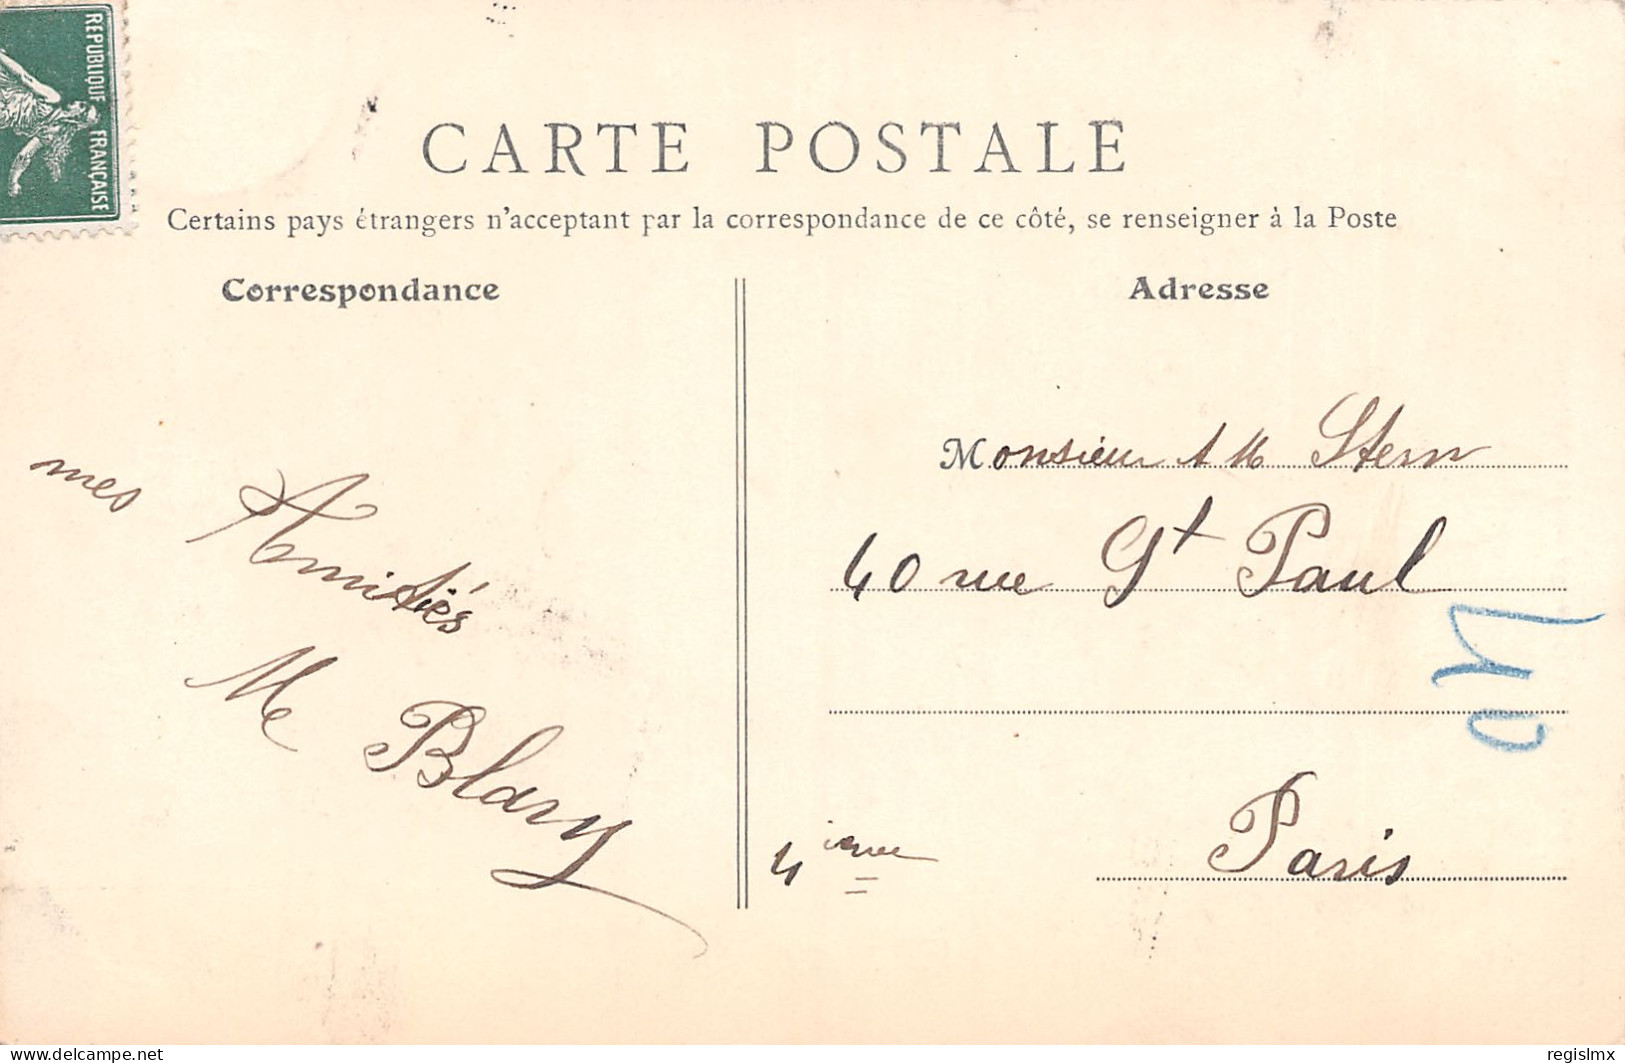 REPUBLIQUE FRANÇAISE
CARTE POSTALE
Certains pays étrangers n'acceptant par la correspondance de ce côté, se renseigner à la Poste
Correspondance
mes Amitiés
Me Blary
Adresse
Monsieur Stern
40 rue St Paul
Paris
4ième
www.delcampe.net
regislmx